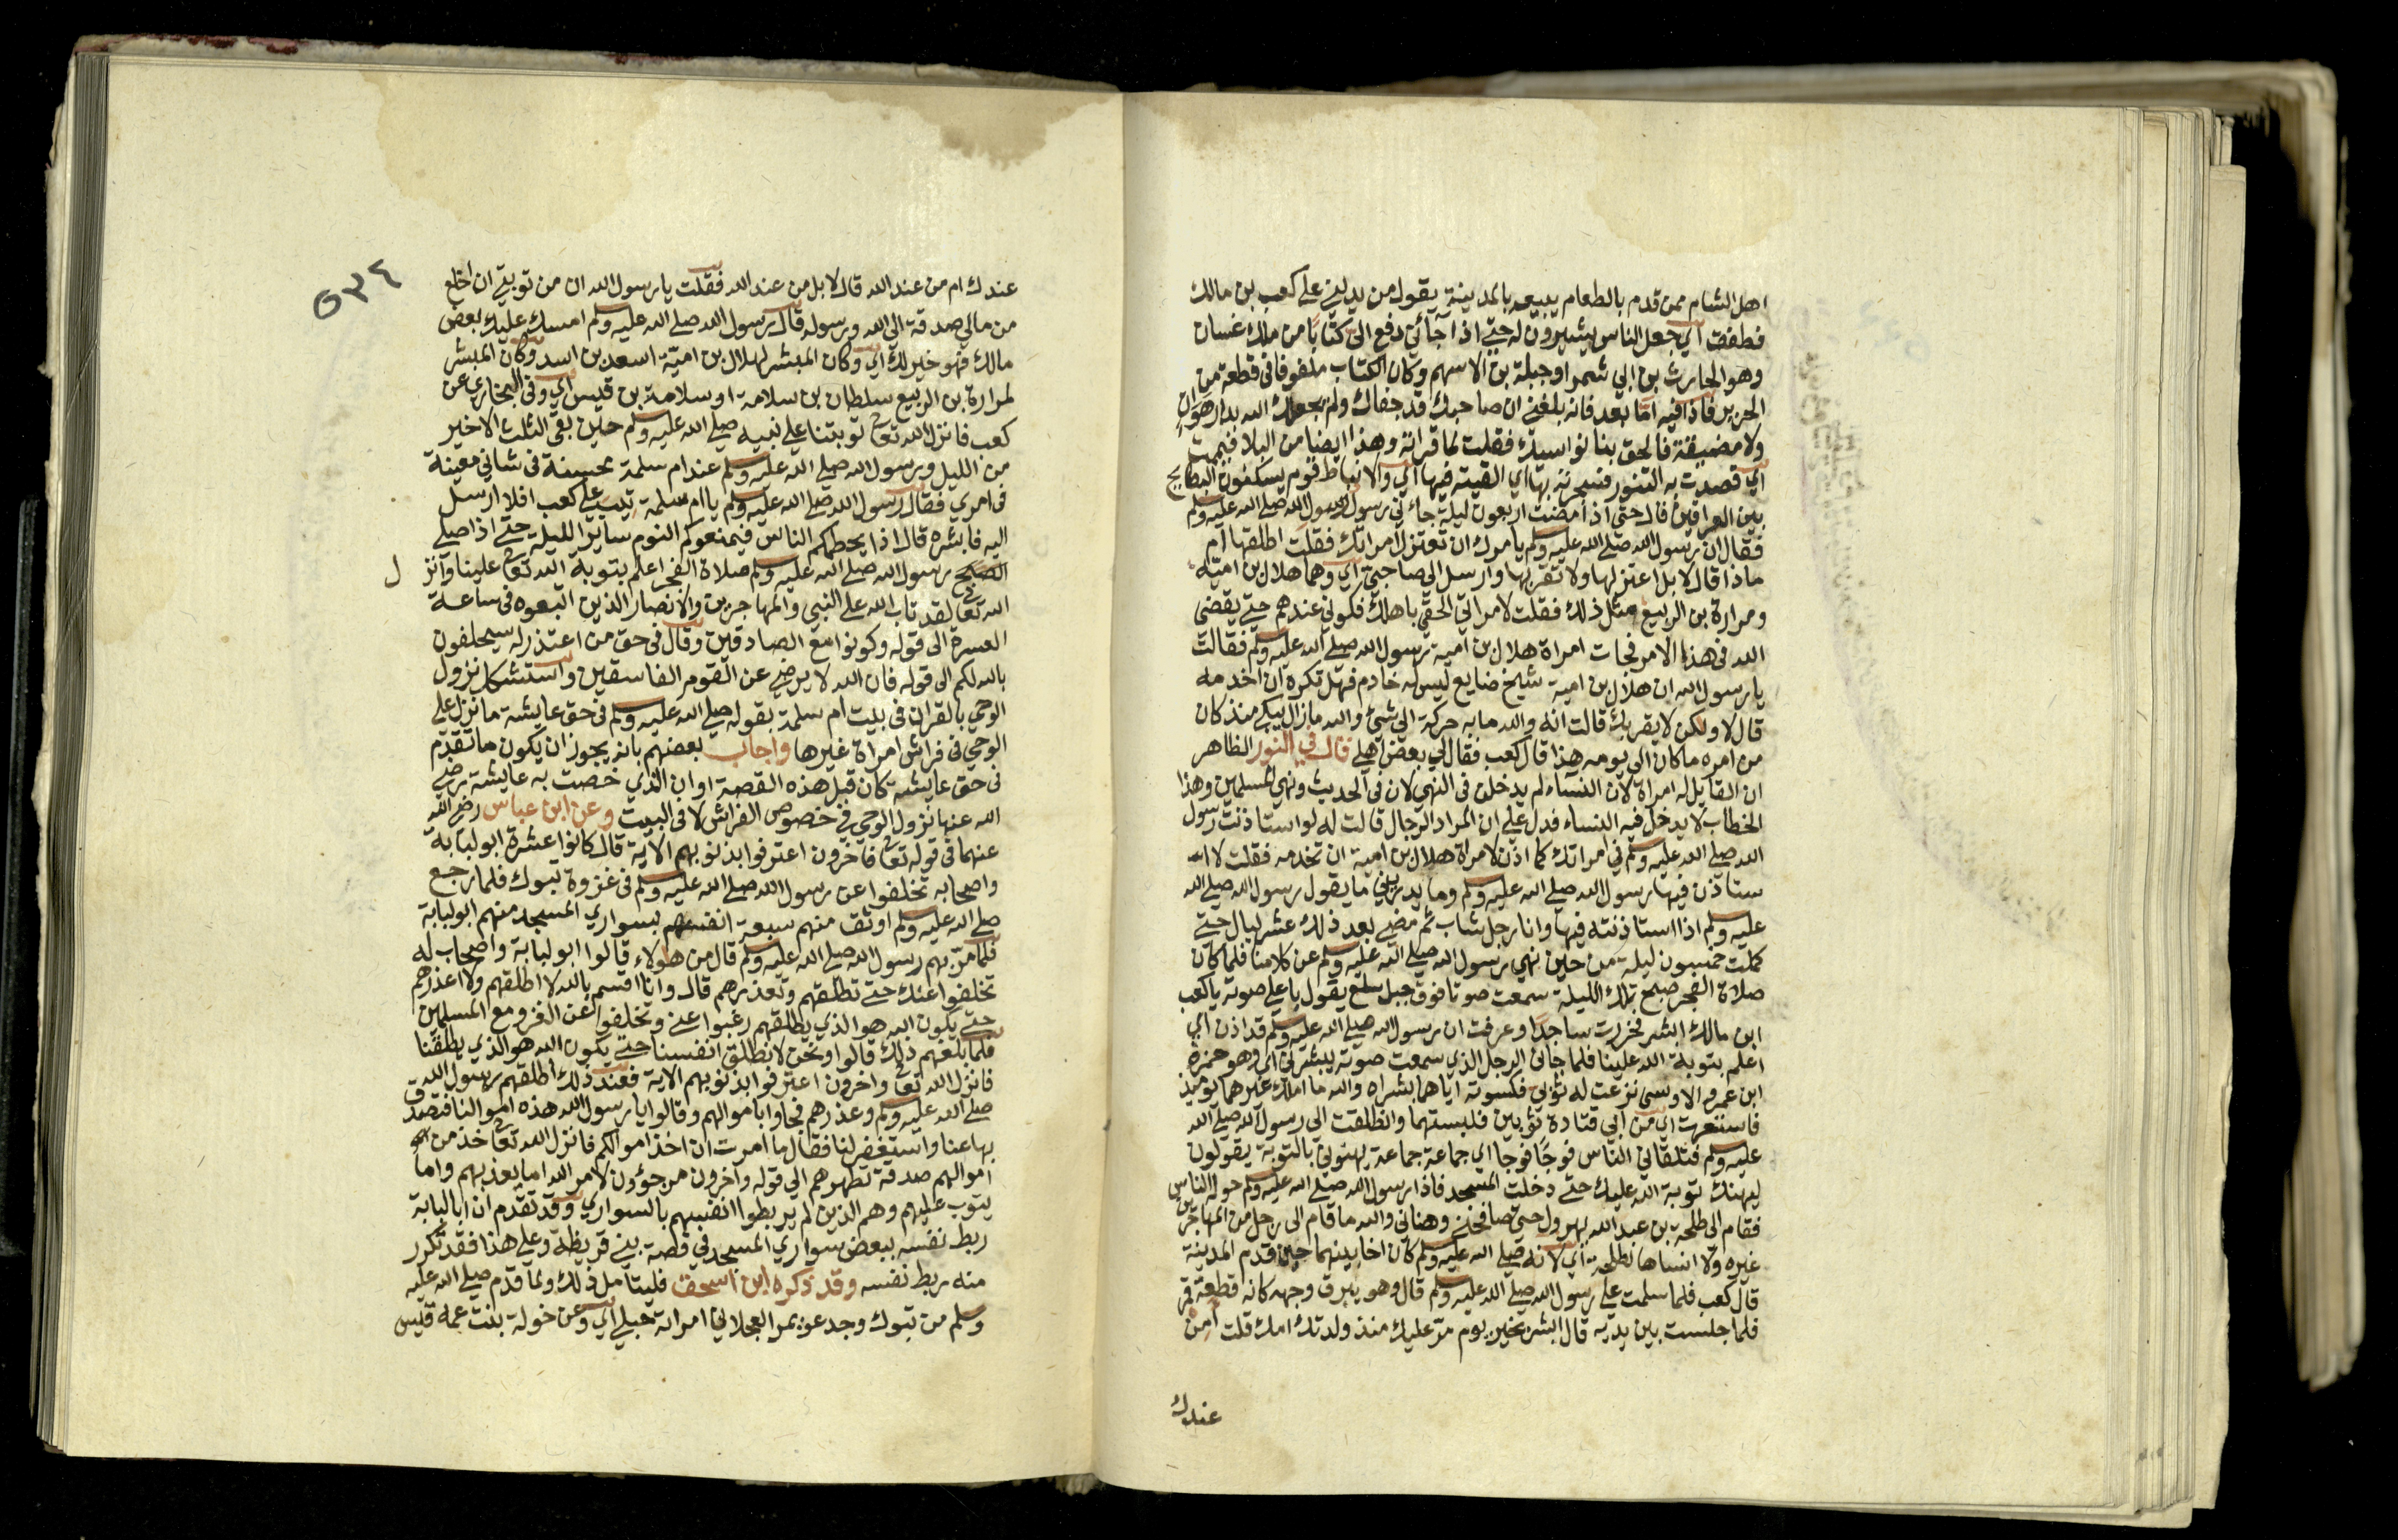 اهل الشام ممن قدم بالطعام يبيعه بالمدينة يقول من يدلني على كعب بن مالك
فطفق اي جعل الناس يشيرون له حتى اذا جائني دفع الي كتابا من ملك غسان
وهو الحارث بن ابي شمر او جبلة بن الاسهم وكان الكتاب ملفوفا في قطعة من
الحرير فاذا فيه اما بعد فانه بلغني ان صاحبك قد جفاك ولم يجعلك الله بدار هوان
ولا مضيقة فالحق بنا نواسيك فقلت لما قراته وهذا ايضا من البلا فيممت
اي قصدت به التنور فسجرته بها اي القيته فيها اي والانباط قوم يسكنون البطايح
بين العراقين قال حتى اذا مضت اربعون ليلة جاءني رسول رسول الله صلى الله عليه وسلم
فقال ان رسول الله صلى الله عليه وسلم يامرك ان تعتزل امراتك فقلت اطلقها ام
ماذا قال لا بل اعتزلها ولا تقربها وارسل الى صاحبي اي وهما هلال بن امية
ومرارة بن الربيع مثل ذلك فقلت لامراتي الحقي باهلك فكوني عندهم حتى يقضي
الله في هذا الامر فجات امراة هلال بن امية رسول الله صلى الله عليه وسلم فقالت
يا رسول الله ان هلال بن امية شيخ ضايع ليس له خادم فهل تكره ان اخدمه
قال لا ولكن لا يقربك قالت انه والله ما به حركة الى شيئ والله ما زال يبكي منذ كان
من امره ما كان الى يومه هذا قال كعب فقال لي بعض اهلي قال في النور الظاهر
ان القايل له امراة لان النساء لم يدخلن في النهي لان في الحديث ونهى المسلمين وهذا
الخطاب لا يدخل فيه النساء فدل على ان المراد الرجال قالت له لو استاذنت رسول
الله صلى الله عليه وسلم في امراتك كما اذن لامراة هلال بن امية ان تخدمه فقلت لا
ستاذن فيها رسول الله صلى الله عليه وسلم وما يدريني ما يقول رسول الله صلى الله
عليه وسلم اذا استاذنته فيها وانا رجل شاب ثم مضى بعد ذلك عشر ليال حتى
كملت خمسون ليلة من حين نهى رسول الله صلى الله عليه وسلم عن كلامنا فلما كان
صلاة الفجر صبح تلك الليلة سمعت صوتا فوق جبل سلع يقول باعلى صوته يا كعب
ابن مالك ابشر فخررت ساجدا وعرفت ان رسول الله صلى الله عليه وسلم قد اذن اي
اعلم بتوبة الله علينا فلما جاني الرجل الذي سمعت صوته يبشرني اي وهو حمزة
ابن عمرو الاوسي نزعت له ثوبي فكسوته اياهما بشراه والله ما املك غيرهما يوميذ
فاستعرت اي من ابي قتادة ثوبين فلبستهما وانطلقت الى رسول الله صلى الله
عليه وسلم فتلقاني الناس فوجا فوجا اي جماعة جماعة يهنوني بالتوبة يقولون
ليهنك توبة الله عليك حتى دخلت المسجد فاذا رسول الله صلى الله عليه وسلم حوله الناس
فقام الى طلحة بن عبد الله يهرول حتى صافحني وهناني والله ما قام الي رجل من المهاجرين
غيره ولا انساها لطلحة اي لانه صلى الله عليه وسلم كان اخا بينهما حين قدم المدينة
قال كعب فلما سلمت على رسول الله صلى الله عليه وسلم قال وهو يبرق وجهه كانه قطعة قمر
فلما جلست بين يديه قال ابشر بخير يوم مر عليك منذ ولدتك امك قلت امن
عندك
٥٣٤
عندك ام من عند الله قال لا بل من عند الله فقلت يا رسول الله ان من توبتي ان اخلع
من مالي صدقة الى الله ورسوله قال رسول الله صلى الله عليه وسلم امسك عليك بعض
مالك فهو خير لك اي وكان المبشر لهلال بن امية اسعد بن اسد وكان المبشر
لمرارة بن الربيع سلطان بن سلامة او سلامة بن قيس اي وفي البخاري عن
كعب فانزل الله تعالى توبتنا على نبيه صلى الله عليه وسلم حين بقي الثلث الاخير
من الليل ورسول الله صلى الله عليه وسلم عند ام سلمة محسنة في شاني معينة
في امري فقال رسول الله صلى الله عليه وسلم يا ام سلمة تيب على كعب افلا ارسل
اليه فابشره قال اذا يحطمكم الناس فيمنعوكم النوم ساير الليلة حتى اذا صلى
الصبح رسول الله صلى الله عليه وسلم صلاة الفجر اعلم بتوبة الله تعالى علينا وانز ل
الله تعالى لقد تاب الله على النبي والمهاجرين والانصار الذين اتبعوه في ساعة
العسرة الى قوله وكونوا مع الصادقين وقال في حق من اعتذر له سيحلفون
بالله لكم الى قوله فان الله لا يرضى عن القوم الفاسقين واستشكل نزول
الوحي بالقران في بيت ام سلمة بقوله صلى الله عليه وسلم في حق عايشة ما نزل علي
الوحي في فراش امراة غيرها واجاب بعضهم بانه يجوز ان يكون ما تقدم
في حق عايشة كان قبل هذه القصة او ان الذي خصت به عايشة رضي
الله عنها نزول الوحي في خصوص الفراش لا في البيت وعن ابن عباس رضي الله
عنهما في قوله تعالى فاخرون اعترفوا بذنوبهم الاية قال كانوا عشرة ابو لبابة
واصحابه تخلفوا عن رسول الله صلى الله عليه وسلم في غزوة تبوك فلما رجع
صلى الله عليه وسلم اوثق منهم سبعة انفسهم بسواري المسجد منهم ابو لبابة
فلما مر بهم رسول الله صلى الله عليه وسلم قال من هولاء قالوا ابو لبابة واصحاب له
تخلفوا عنك حتى تطلقهم وتعذرهم قال وانا اقسم بالله لا اطلقهم ولا اعذرهم
حتى يكون الله هو الذي يطلقهم رغبوا عني وتخلفوا عن الغزو مع المسلمين
فلما بلغهم ذلك قالوا ونحن لا نطلق انفسنا حتى يكون الله هو الذي يطلقنا
فانزل الله تعالى واخرون اعترفوا بذنوبهم الاية فعند ذلك اطلقهم رسول الله
صلى الله عليه وسلم وعذرهم فجاوا باموالهم وقالوا يا رسول الله هذه اموالنا فتصدق
بها عنا واستغفر لنا فقال ما امرت ان اخذ اموالكم فانزل الله تعالى خذ من
اموالهم صدقة تطهرهم الى قوله واخرون مرجؤن لامر الله اما يعذبهم واما
يتوب عليهم وهم الذين لم يربطوا انفسهم بالسواري وقد تقدم ان ابا لبابة
ربط نفسه ببعض سواري المسجد في قصة بني قريظة وعلى هذا فقد تكرر
منه ربط نفسه وقد ذكره ابن اسحق فليتامل ذلك ولما قدم صلى الله عليه
وسلم من تبوك وجد عويمر العجلاني امراته حبلى اي وعن خولة بنت عمه قيس